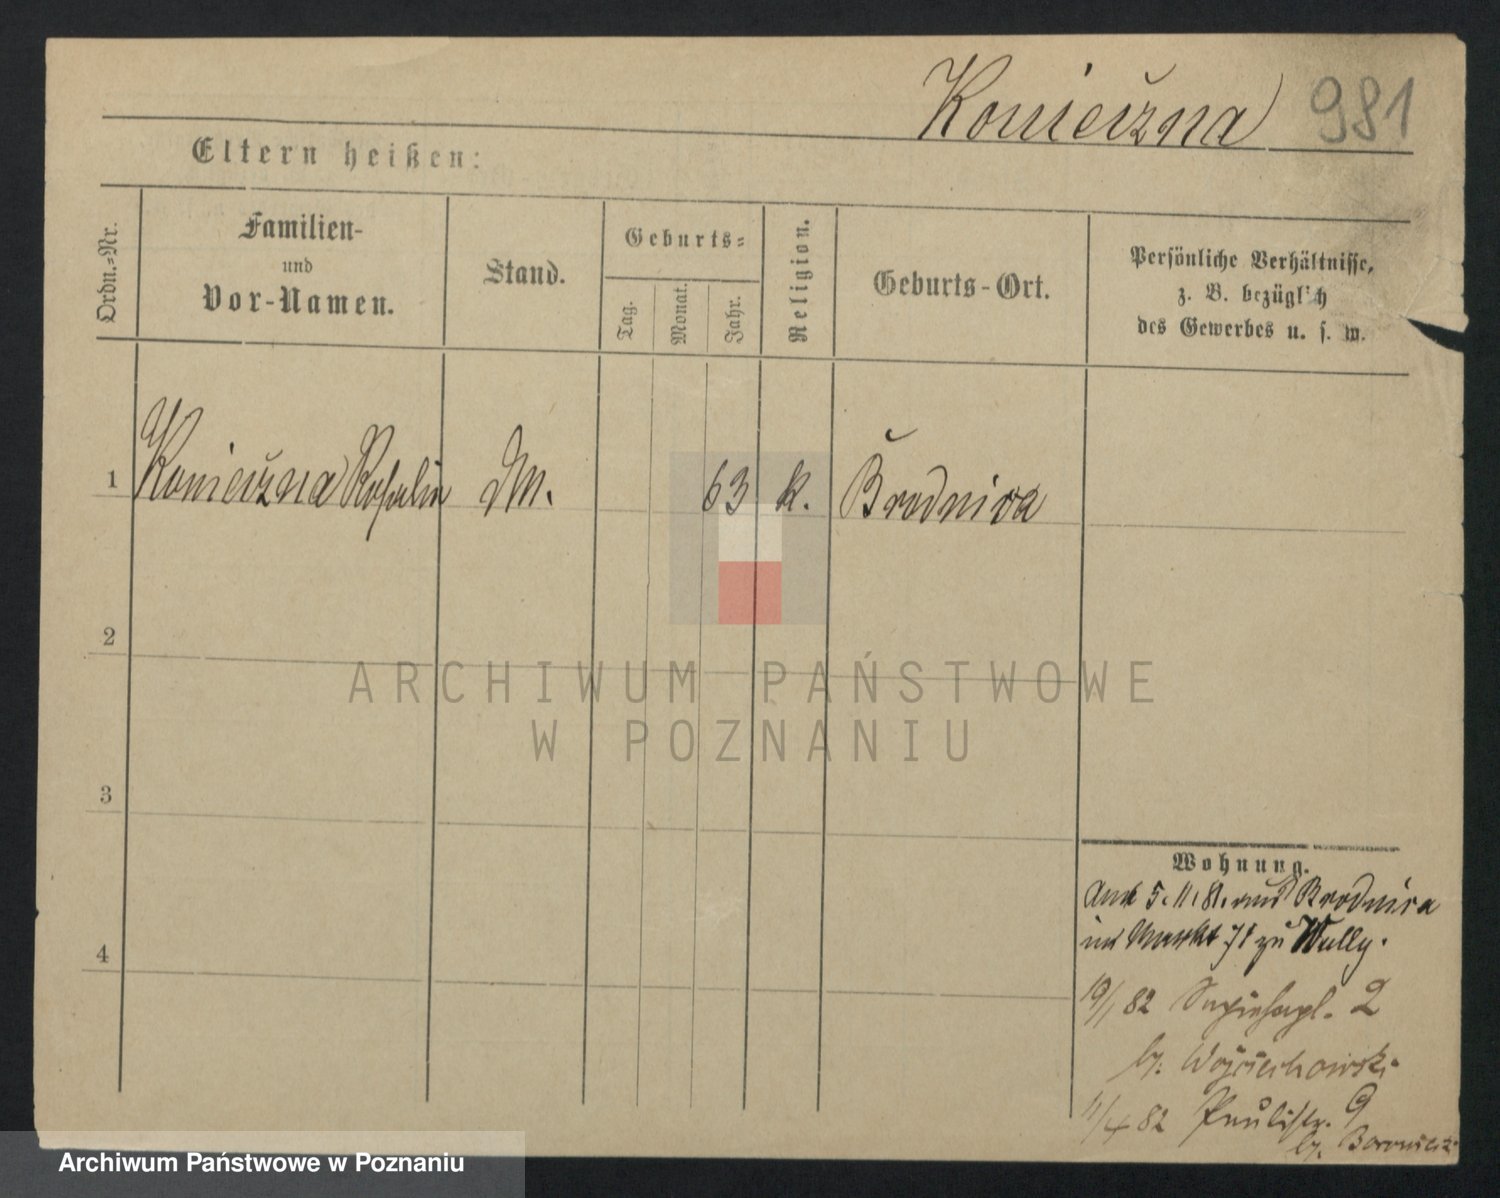 Koniečzna 981
Eltern heißen:
Ordn.-Nr.
Familien-
und
Vor-Namen.
Stand.
Geburts-
Tag.
Monat.
Jahr.
Religion.
Geburts-Ort.
Persönliche Verhältnisse,
z. B. bezüglich
des Gewerbes u. s. w.
1 Koniečzna Rosalia DM. 63 k. Brodnica
2
3
4
Wohnung.
5.11.81. aus Brodnica
im Markt 71 zu Wally.
19/1 82 Sapiehapl. 2
b. Wojciechowski
11/4 82 Paulistr. 9
b.
ARCHIWUM PAŃSTWOWE
W POZNANIU
Archiwum Państwowe w Poznaniu